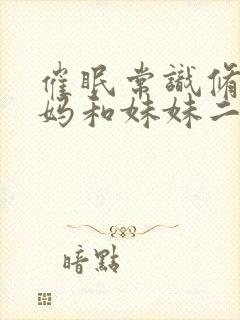 催眠常識脩
妈和妹妹二
暗點